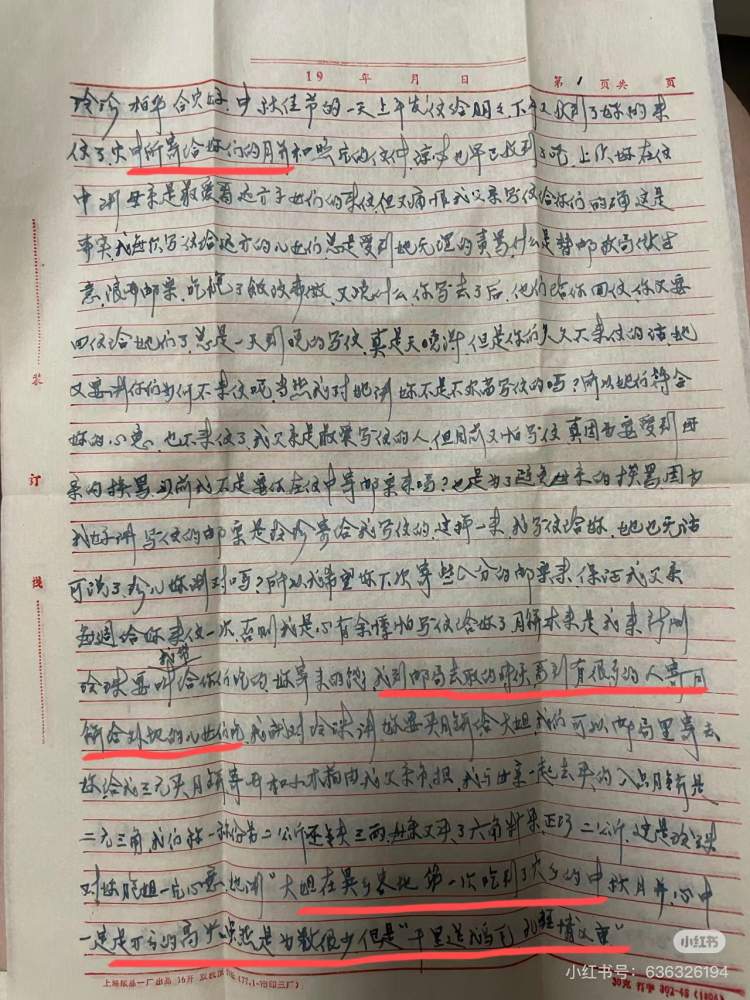 19 年 月 日 第 1 页共 页
玲珍 柏华 合家好,中秋佳节的一天上午发信给明 下午又收到了妳的来
信了,家中所寄给妳们的月并和照 的信件,谅来也早已收到了吧,上次妳在信
中讲母亲是最爱看远方子女们的来信,但又痛恨我父亲写信给你们的 这是
事实,我每次写信给远方的儿女们总是受到她无理的责骂,什么是替邮政局做生
意,浪费邮票,吃饱了饭没事做,又说什么,你写去了后,他们给你回信,你又要
回信给她们了,总是一天到晚的写信,真是天晓得,但是你们久久不来信的话她
又要讲你们为何不来信呢,当然我对她讲妳不是不欢喜写信的吗?所以她们符合
妳的心意,也不来信了,我父亲是最爱写信的人,但目前又怕写信,真因为要受到母
亲的挨骂,以前我不是要你在信中寄邮票来吗?也是为了避免母亲的挨骂,因为
我好讲写信的邮票是玲珍寄给我写信的,这样一来,我写信给妳,她也无话
可说了,珍儿妳讲对吗?所以我希望妳下次寄些八分的邮票来,保证我父亲
每週给妳来信一次,否则我是心有余悸怕写信给妳了,月饼本来是我来 
玲珠要 给你们吃的,妳寄来的 ,我到邮局去取的时候看到有很多的人寄月
饼给外地的儿女们吃,我就对玲珠讲,妳要买月饼给大姐,我们可以邮局里寄去
妳给我三元买月饼,寄 和小木箱由我父亲负担,我与母亲一起去买的,八只月饼是
二元三角,我们称一称约为二公斤还缺三两,母亲又买了六角 ,正巧二公斤,这是玲珠
对妳胞姐一 心意,她讲"大姐在异乡客地第一次吃到了家乡的中秋月并,心中
一定是万分的高兴,虽然是为数很少但是"千里送鹅毛 礼轻情义重"
装
订
线
上海纸品一厂出品 16开 双
小红书
小红书号:636326194